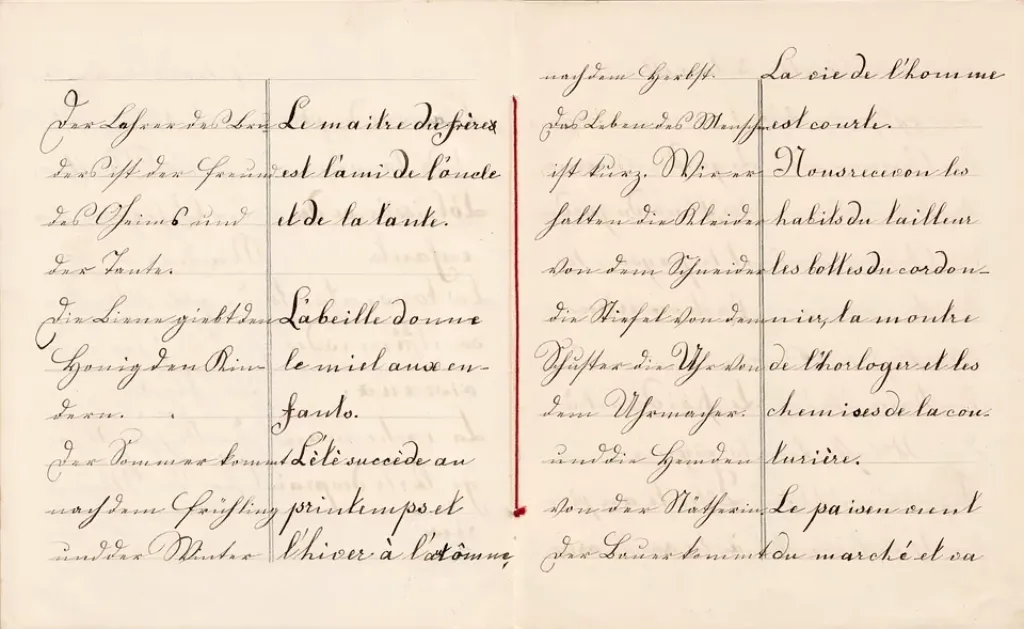 Der Lehrer des Bru-
ders ist der Freund
des Oheims und
der Tante.
Die Biene giebt den
Honig den Kin-
dern.
Der Sommer kommt
nach dem Frühling
und der Winter
Le maitre du frères
est l'ami de l'oncle
et de la tante.
L'abeille donne
le miel aux en-
fants.
L'étè succède au
printemps et
l'hiver à l'atômne,
nach dem Herbst.
Das Leben des Menschen
ist kurz. Wir er-
halten die Kleider
von dem Schneider
die Stiefel von dem
Schuster die Uhr von
dem Uhrmacher.
und die Hemden
von der Nätherin
Der Bauer kommt
La vie de l'homme
est courte.
Nous recevon les
habits du tailleur
les bottes du cordon-
nier, la montre
de l'horloger et les
chemises de la cou-
turière.
Le paisen vient
du marché et va